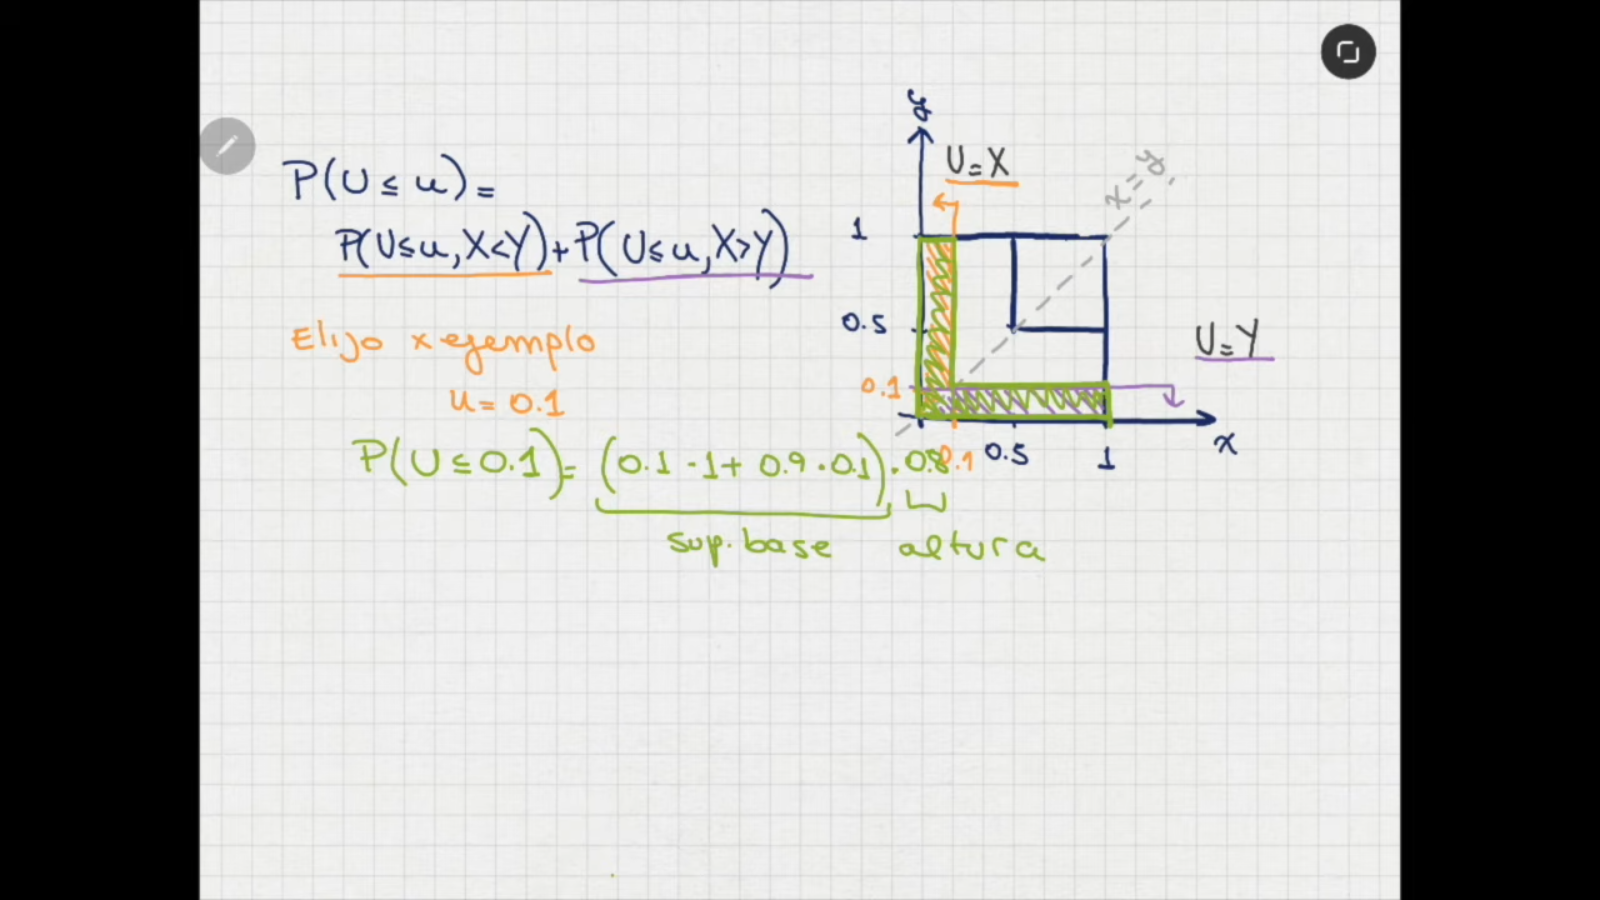 P(U ≤ u) =
P(U≤u, X<Y) + P(U≤u, X>Y)
Elijo x ejemplo
u = 0.1
P(U ≤ 0.1) = (0.1 · 1 + 0.9 · 0.1) · 0.8
sup. base altura
y
U = X
x = y
1
0.5
U = Y
0.1
0.1 0.5 1
x